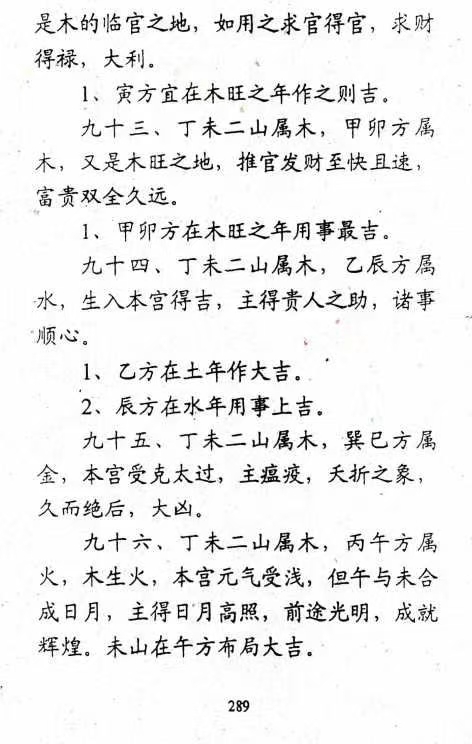 是木的临官之地，如用之求官得官，求财
得禄，大利。
1、寅方宜在木旺之年作之则吉。
九十三、丁未二山属木，甲卯方属
木，又是木旺之地，推官发财至快且速，
富贵双全久远。
1、甲卯方在木旺之年用事最吉。
九十四、丁未二山属木，乙辰方属
水，生入本宫得吉，主得贵人之助，诸事
顺心。
1、乙方在土年作大吉。
2、辰方在水年用事上吉。
九十五、丁未二山属木，巽巳方属
金，本宫受克太过，主瘟疫，夭折之象，
久而绝后，大凶。
九十六、丁未二山属木，丙午方属
火，木生火，本宫元气受浅，但午与未合
成日月，主得日月高照，前途光明，成就
辉煌。未山在午方布局大吉。
289